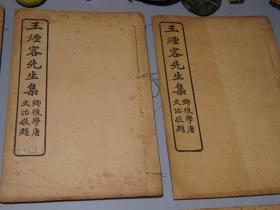 王煙客先生集
鄉後學唐
文治敬題
王煙客先生集
鄉後學唐
文治敬題